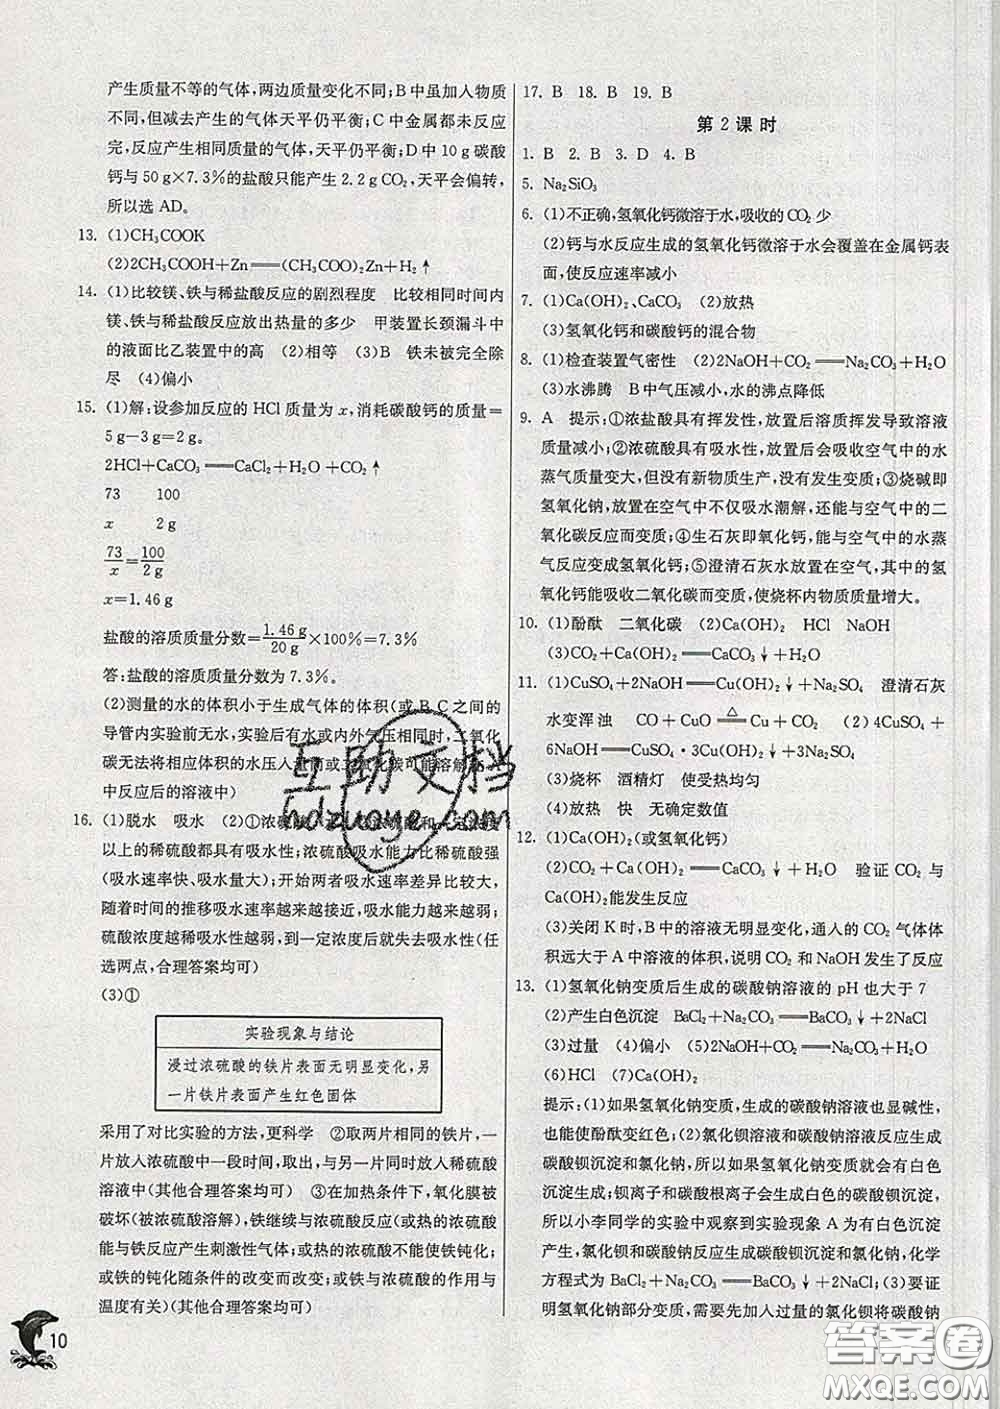 产生质量不等的气体,两边质量变化不同;B中虽加入物质
不同,但减去产生的气体天平仍平衡;C中金属都未反应
完,反应产生相同质量的气体,天平仍平衡;D中10 g碳酸
钙与50 g×7.3%的盐酸只能产生2.2 g CO₂,天平会偏转,
所以选AD。
13. (1)CH₃COOK
(2)2CH₃COOH+Zn══(CH₃COO)₂Zn+H₂↑
14. (1)比较镁、铁与稀盐酸反应的剧烈程度 比较相同时间内
镁、铁与稀盐酸反应放出热量的多少 甲装置长颈漏斗中
的液面比乙装置中的高 (2)相等 (3)B 铁未被完全除
尽 (4)偏小
15. (1)解:设参加反应的HCl质量为x,消耗碳酸钙的质量=
5 g-3 g=2 g。
2HCl+CaCO₃══CaCl₂+H₂O+CO₂↑
73 100
x 2 g
73/x=100/2 g
x=1.46 g
盐酸的溶质质量分数=1.46 g/20 g×100%=7.3%
答:盐酸的溶质质量分数为7.3%。
(2)测量的水的体积小于生成气体的体积(或B、C之间的
导管内实验前无水,实验后有水或内外气压相同时,二氧化
碳无法将相应体积的水压入量筒或二氧化碳可能溶解在A
中反应后的溶液中)
16. (1)脱水 吸水 (2)①浓硫酸
以上的稀硫酸都具有吸水性;浓硫酸吸水能力比稀硫酸强
(吸水速率快、吸水量大);开始两者吸水速率差异比较大,
随着时间的推移吸水速率越来越接近,吸水能力越来越弱;
硫酸浓度越稀吸水性越弱,到一定浓度后就失去吸水性(任
选两点,合理答案均可)
(3)①
实验现象与结论
浸过浓硫酸的铁片表面无明显变化,另
一片铁片表面产生红色固体
采用了对比实验的方法,更科学 ②取两片相同的铁片,一
片放入浓硫酸中一段时间,取出,与另一片同时放入稀硫酸
溶液中(其他合理答案均可) ③在加热条件下,氧化膜被
破坏(被浓硫酸溶解),铁继续与浓硫酸反应(或热的浓硫酸
能与铁反应产生刺激性气体;或热的浓硫酸不能使铁钝化;
或铁的钝化随条件的改变而改变;或铁与浓硫酸的作用与
温度有关)(其他合理答案均可)
10
17. B 18. B 19. B
第2课时
1. B 2. B 3. D 4. B
5. Na₂SiO₃
6. (1)不正确,氢氧化钙微溶于水,吸收的CO₂少
(2)钙与水反应生成的氢氧化钙微溶于水会覆盖在金属钙表
面,使反应速率减小
7. (1)Ca(OH)₂、CaCO₃ (2)放热
(3)氢氧化钙和碳酸钙的混合物
8. (1)检查装置气密性 (2)2NaOH+CO₂══Na₂CO₃+H₂O
(3)水沸腾 B中气压减小,水的沸点降低
9. A 提示:①浓盐酸具有挥发性,放置后溶质挥发导致溶液
质量减小;②浓硫酸具有吸水性,放置后会吸收空气中的水
蒸气质量变大,但没有新物质生产,没有发生变质;③烧碱即
氢氧化钠,放置在空气中不仅吸水潮解,还能与空气中的二
氧化碳反应而变质;④生石灰即氧化钙,能与空气中的水蒸
气反应变成氢氧化钙;⑤澄清石灰水放置在空气,其中的氢
氧化钙能吸收二氧化碳而变质,使烧杯内物质质量增大。
10. (1)酚酞 二氧化碳 (2)Ca(OH)₂ HCl NaOH
(3)CO₂+Ca(OH)₂══CaCO₃↓+H₂O
11. (1)CuSO₄+2NaOH══Cu(OH)₂↓+Na₂SO₄ 澄清石灰
水变浑浊 CO+CuO══(△)Cu+CO₂ (2)4CuSO₄+
6NaOH══CuSO₄·3Cu(OH)₂↓+3Na₂SO₄
(3)烧杯 酒精灯 使受热均匀
(4)放热 快 无确定数值
12. (1)Ca(OH)₂(或氢氧化钙)
(2)CO₂+Ca(OH)₂══CaCO₃↓+H₂O 验证CO₂与
Ca(OH)₂能发生反应
(3)关闭K时,B中的溶液无明显变化,通入的CO₂气体体
积远大于A中溶液的体积,说明CO₂和NaOH发生了反应
13. (1)氢氧化钠变质后生成的碳酸钠溶液的pH也大于7
(2)产生白色沉淀 BaCl₂+Na₂CO₃══BaCO₃↓+2NaCl
(3)过量 (4)偏小 (5)2NaOH+CO₂══Na₂CO₃+H₂O
(6)HCl (7)Ca(OH)₂
提示:(1)如果氢氧化钠变质,生成的碳酸钠溶液也显碱性,
也能使酚酞变红色;(2)氯化钡溶液和碳酸钠溶液反应生成
碳酸钡沉淀和氯化钠,所以如果氢氧化钠变质就会有白色
沉淀生成;钡离子和碳酸根离子会生成白色的碳酸钡沉淀,
所以小李同学的实验中观察到实验现象A为有白色沉淀
产生,氯化钡和碳酸钠反应生成碳酸钡沉淀和氯化钠,化学
方程式为BaCl₂+Na₂CO₃══BaCO₃↓+2NaCl;(3)要证
明氢氧化钠部分变质,需要先加入过量的氯化钡将碳酸钠
互助文档
hdzuoye.com
答案圈
MXQE.COM